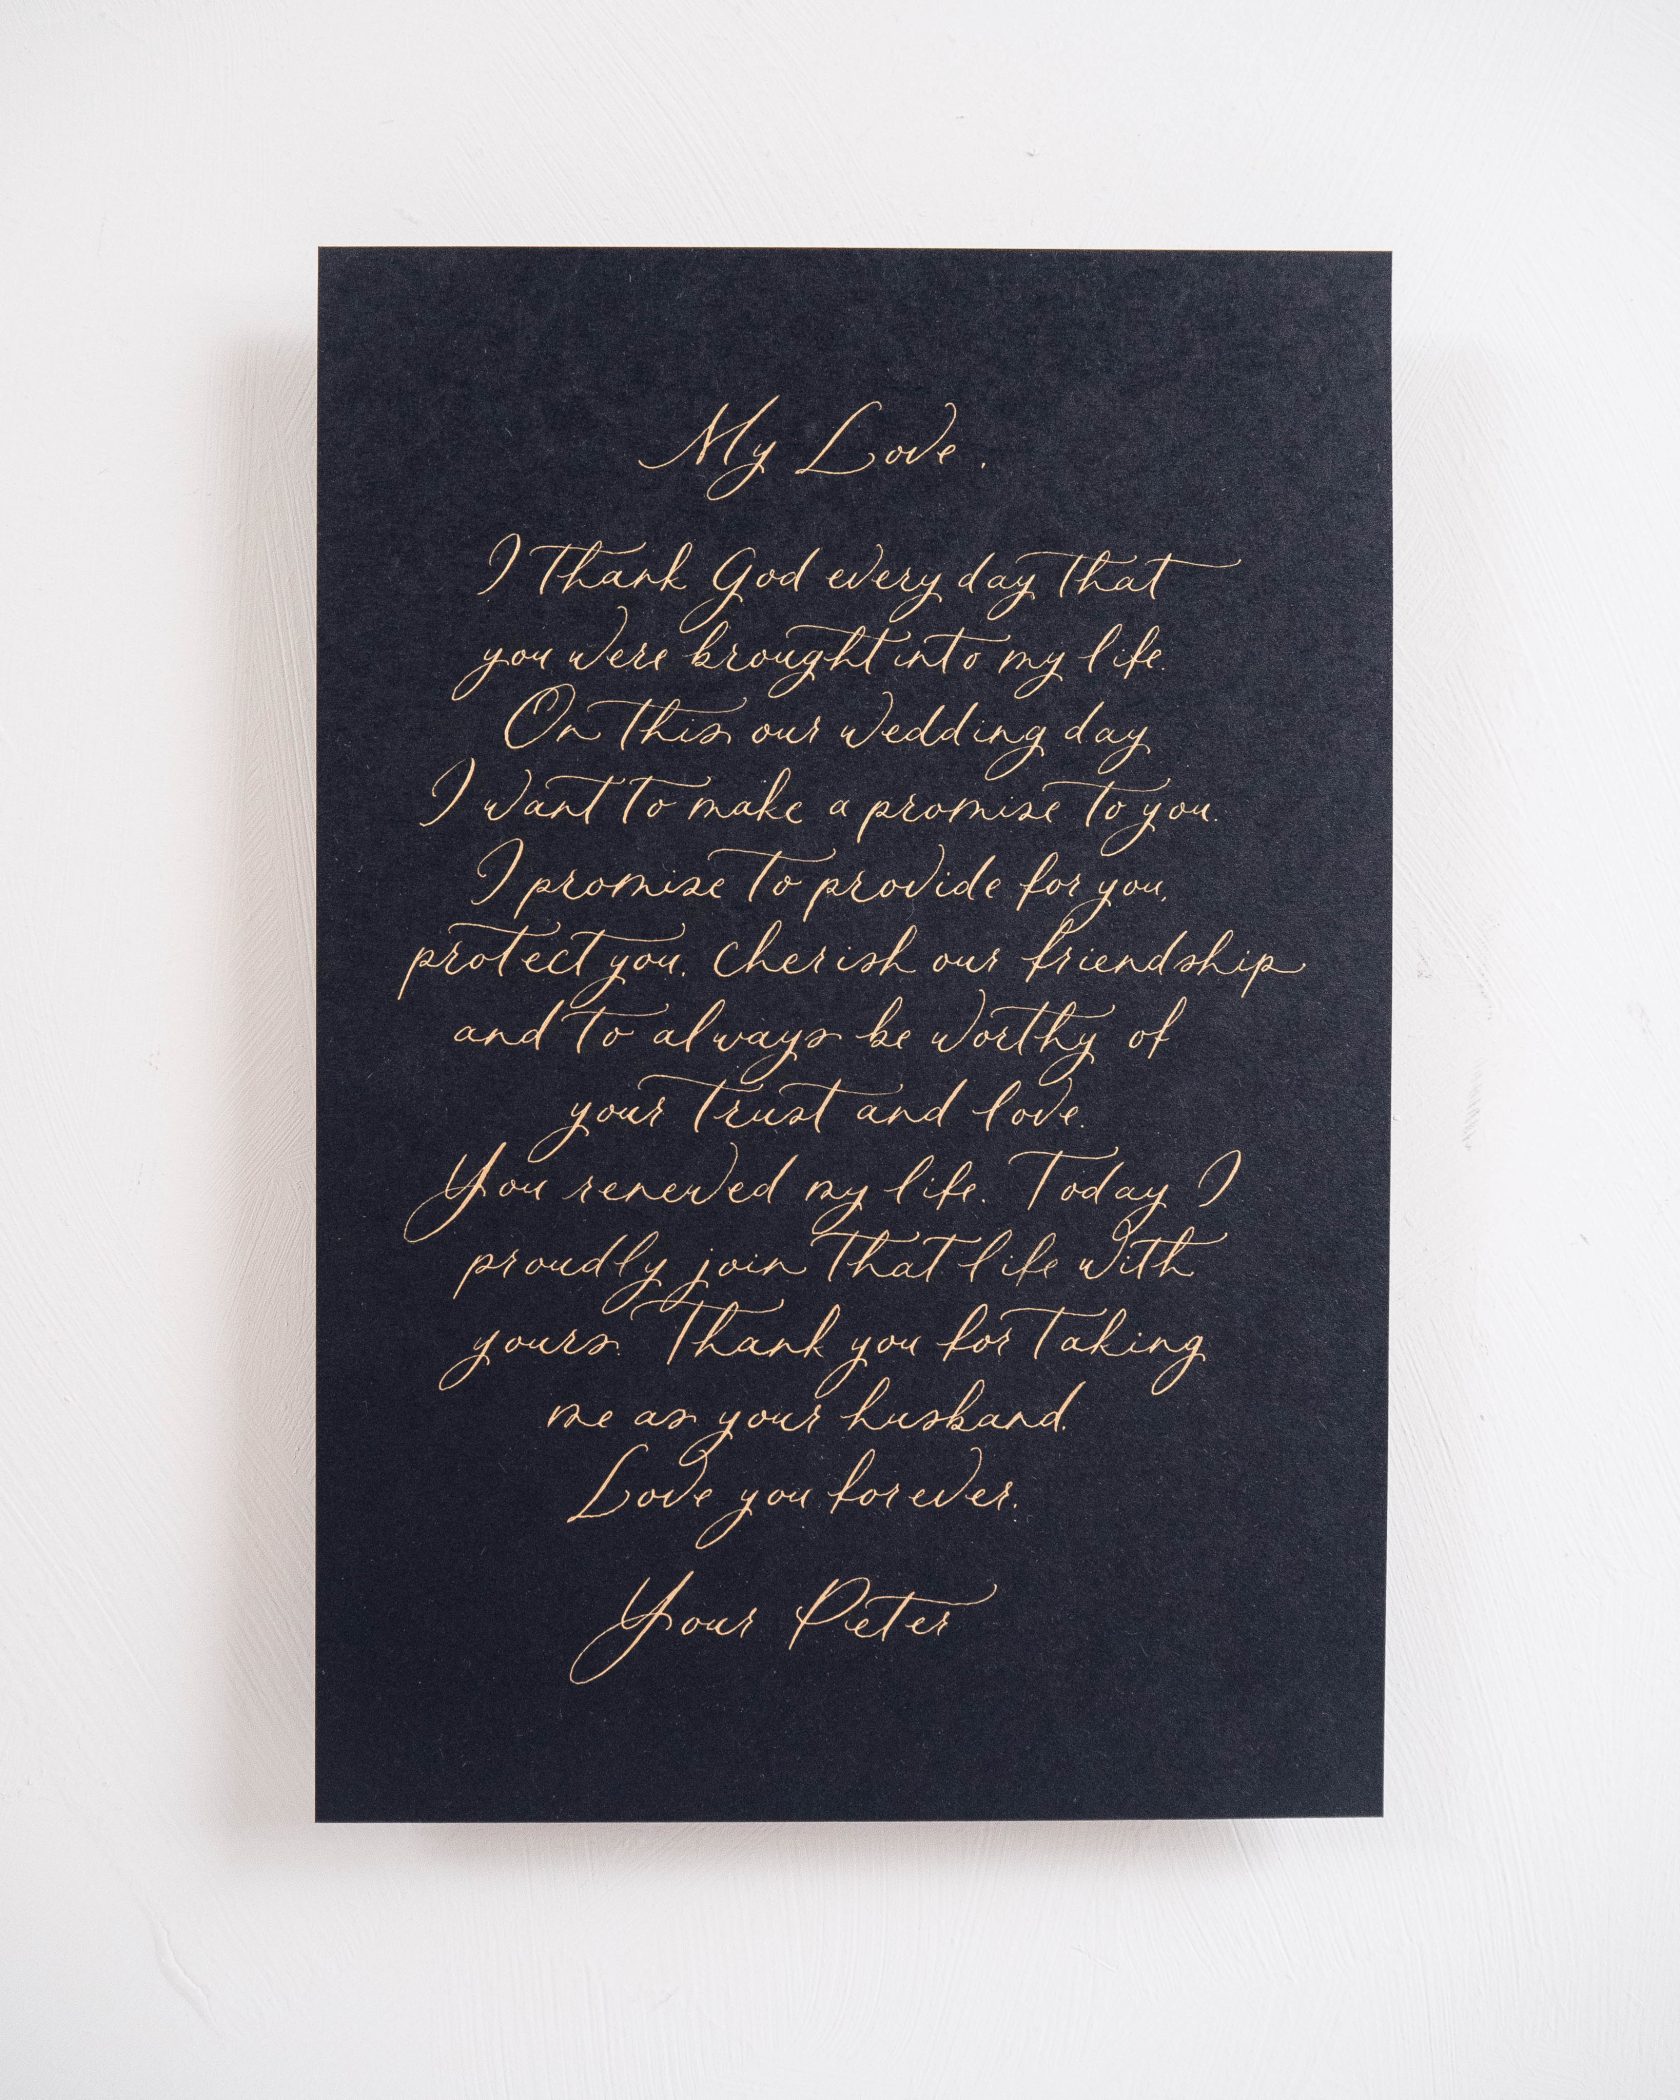 My Love,
I thank God every day that
you were brought into my life.
On this our wedding day
I want to make a promise to you.
I promise to provide for you,
protect you, cherish our friendship
and to always be worthy of
your trust and love.
You renewed my life. Today I
proudly join that life with
yours. Thank you for taking
me as your husband.
Love you forever.
Your Peter